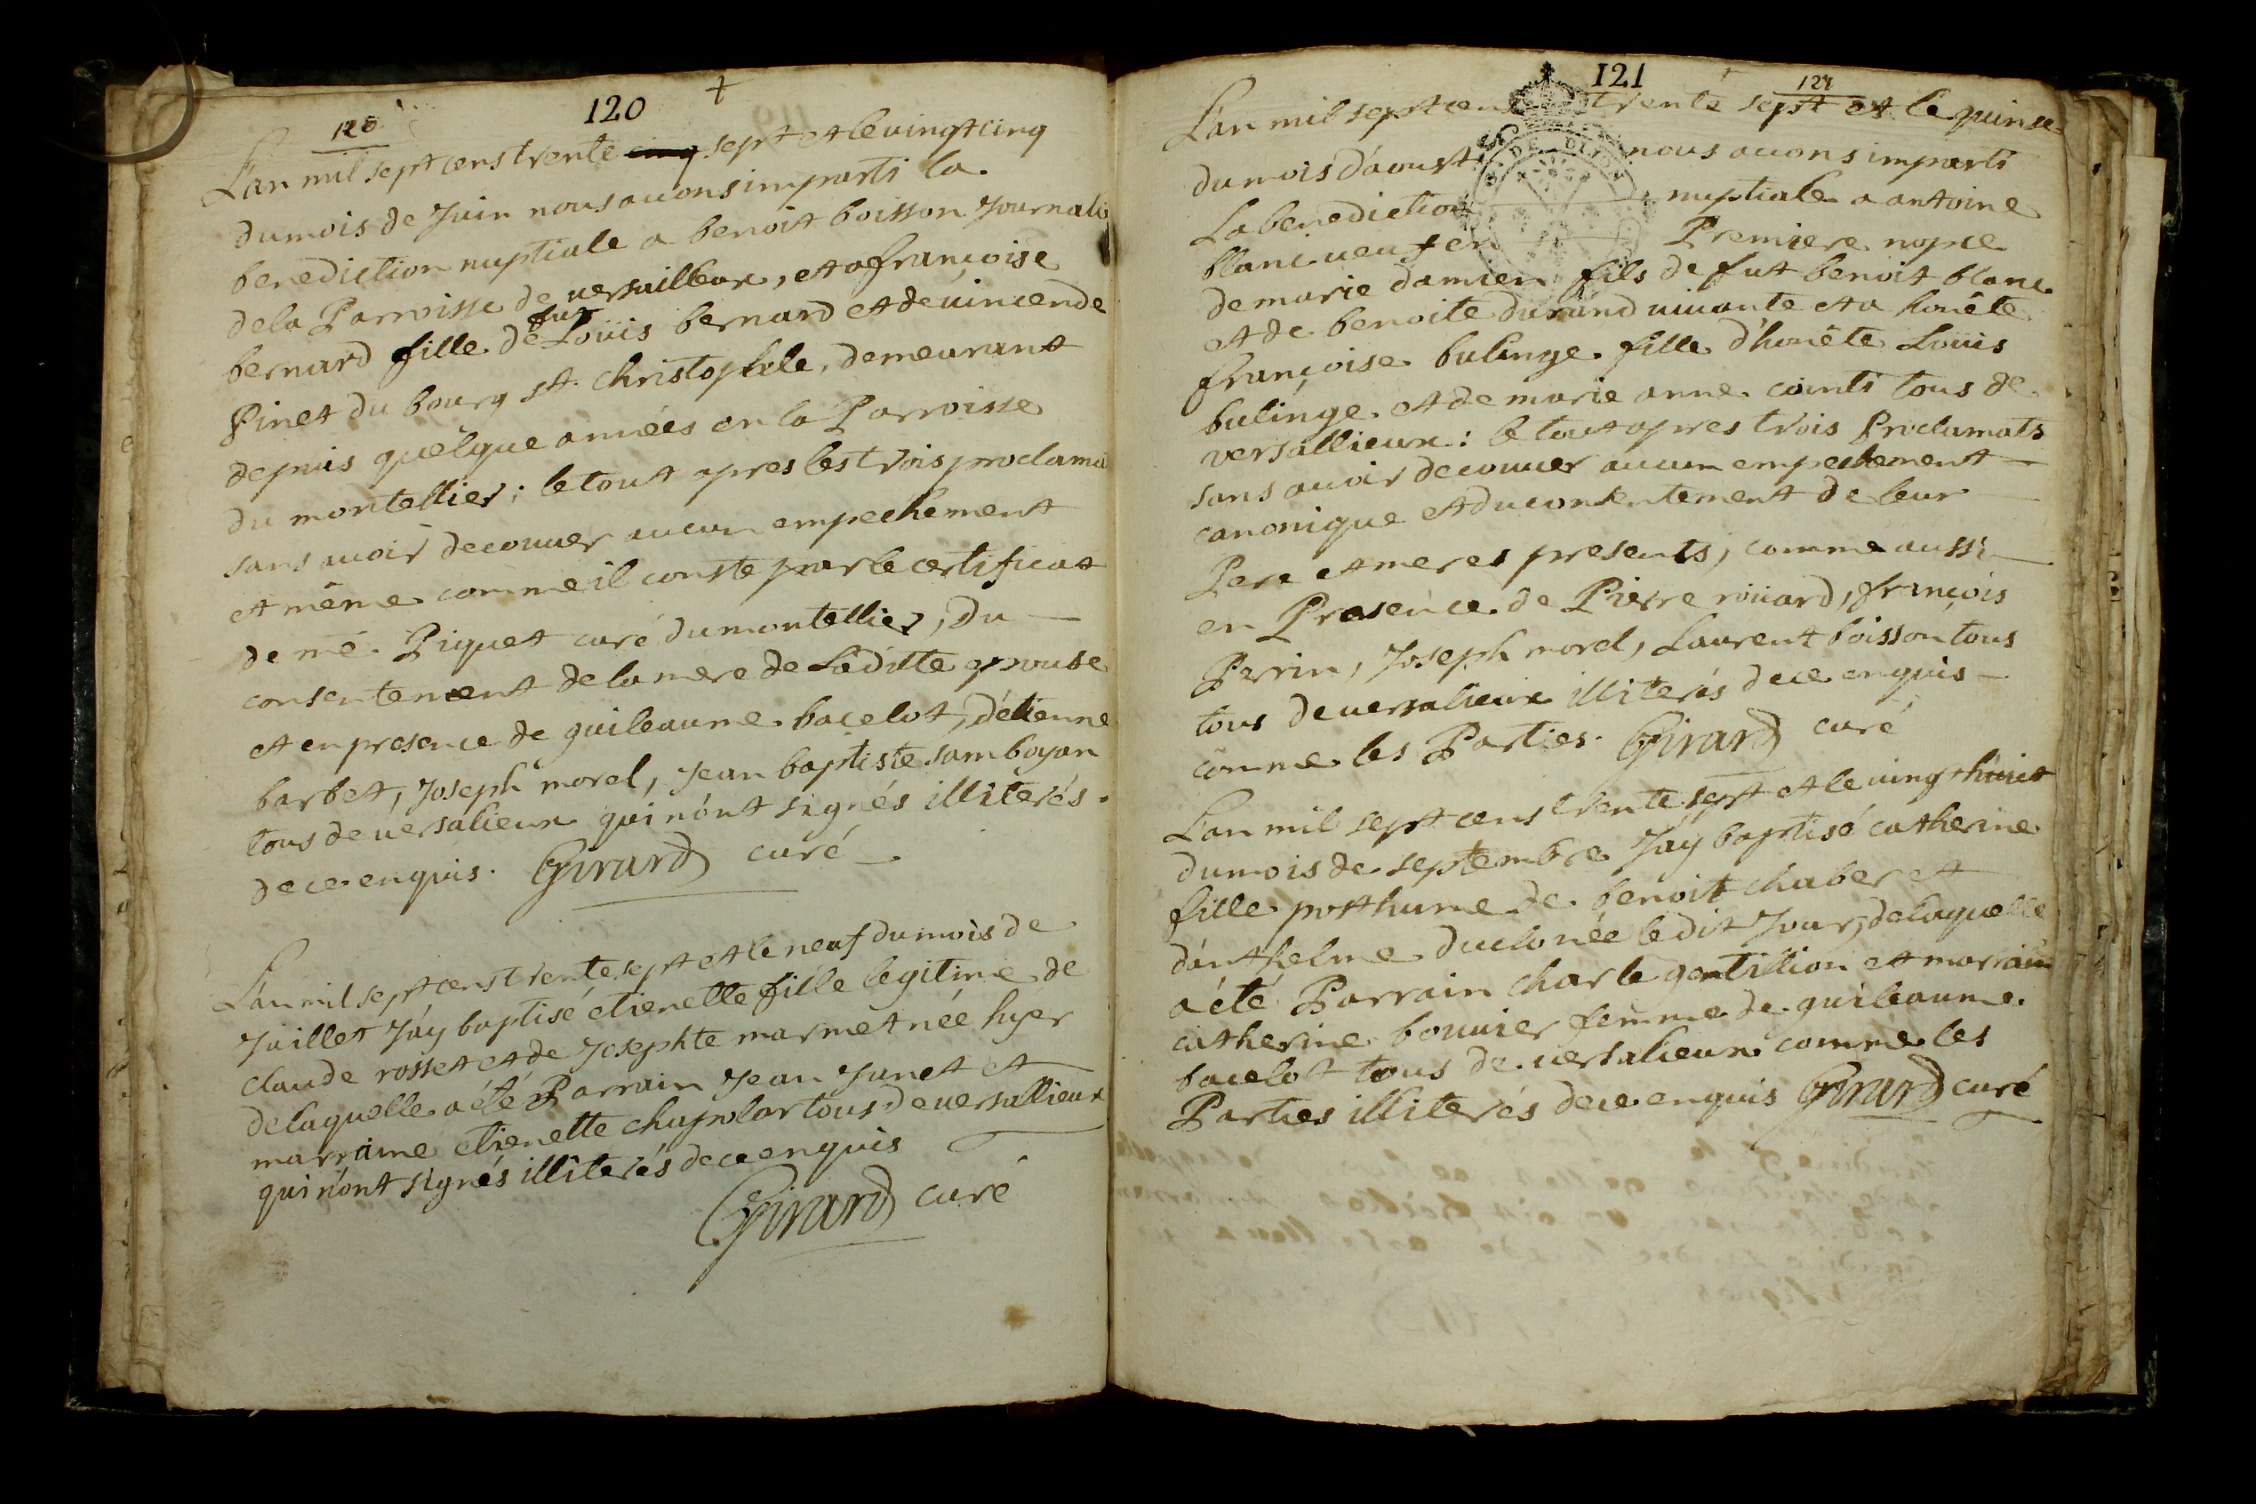 120
120
L'an mil sept cens trente cinq sept et le vingt cinq
du mois de Juin nous avons imparti la
benediction nuptiale a benoit boisson Journali
de la Parroisse de versailleux, et a françoise
bernard fille de fut Loüis bernard et de vincende
Pinet du bourg st. christophle, demeurant
depuis quelque années en la Parroisse
du montellier; le tout apres les trois proclama
sans avoir decouver aucun empechement
et même comme il conste par le certificat
de mé. Piquet curé du montellier, du
consentement de la mere de Laditte epouse
et en presence de guileaume bacelot, d'étienne
barbet, Joseph morel, Jean baptiste samboyan
tous de versalieux qui n'ont signés illiterés
de ce enquis. Girard curé
L'an mil sept cens trente sept et le neuf du mois de
Juillet J'ay baptisé etienette fille legitime de
claude rosset et de Josephte marmet née hyer
de laquelle a été Parrain Jean Junet et
marraine etienette chapolar tous de versallieux
qui n'ont signés illiterés de ce enquis
Girard curé
121
121
L'an mil sept cens trente sept et le quinse
du mois d'aoust nous avons imparti
La benediction nuptiale a antoine
blanc veuf en Premiere nopce
de marie damien fils de fut benoit blanc
et de benoite durand vivante et a honête
françoise bulinge fille d'honête Loüis
bulinge et de marie anne cointi tous de
versallieux: le tout apres trois Proclamats
sans avoir decouver aucun empechement
canonique et du consentement de leur
Pere et meres presents, comme aussi
en Presence de Pierre roüard, françois
Perrin, Joseph morel, Laurent boisson tous
tous de versalieux illiterés de ce enquis
comme les Parties. Girard curé
L'an mil sept cens trente sept et le vingt huit
du mois de septembre J'ay baptisé catherine
fille posthume de benoit chaber et
d'anthelme duclo née le dit Jour, de laquelle
a été Parrain charle gentillion et marraine
catherine bouvier femme de guileaume
bacelot tous de versalieux comme les
Parties illiterés de ce enquis Girard curé